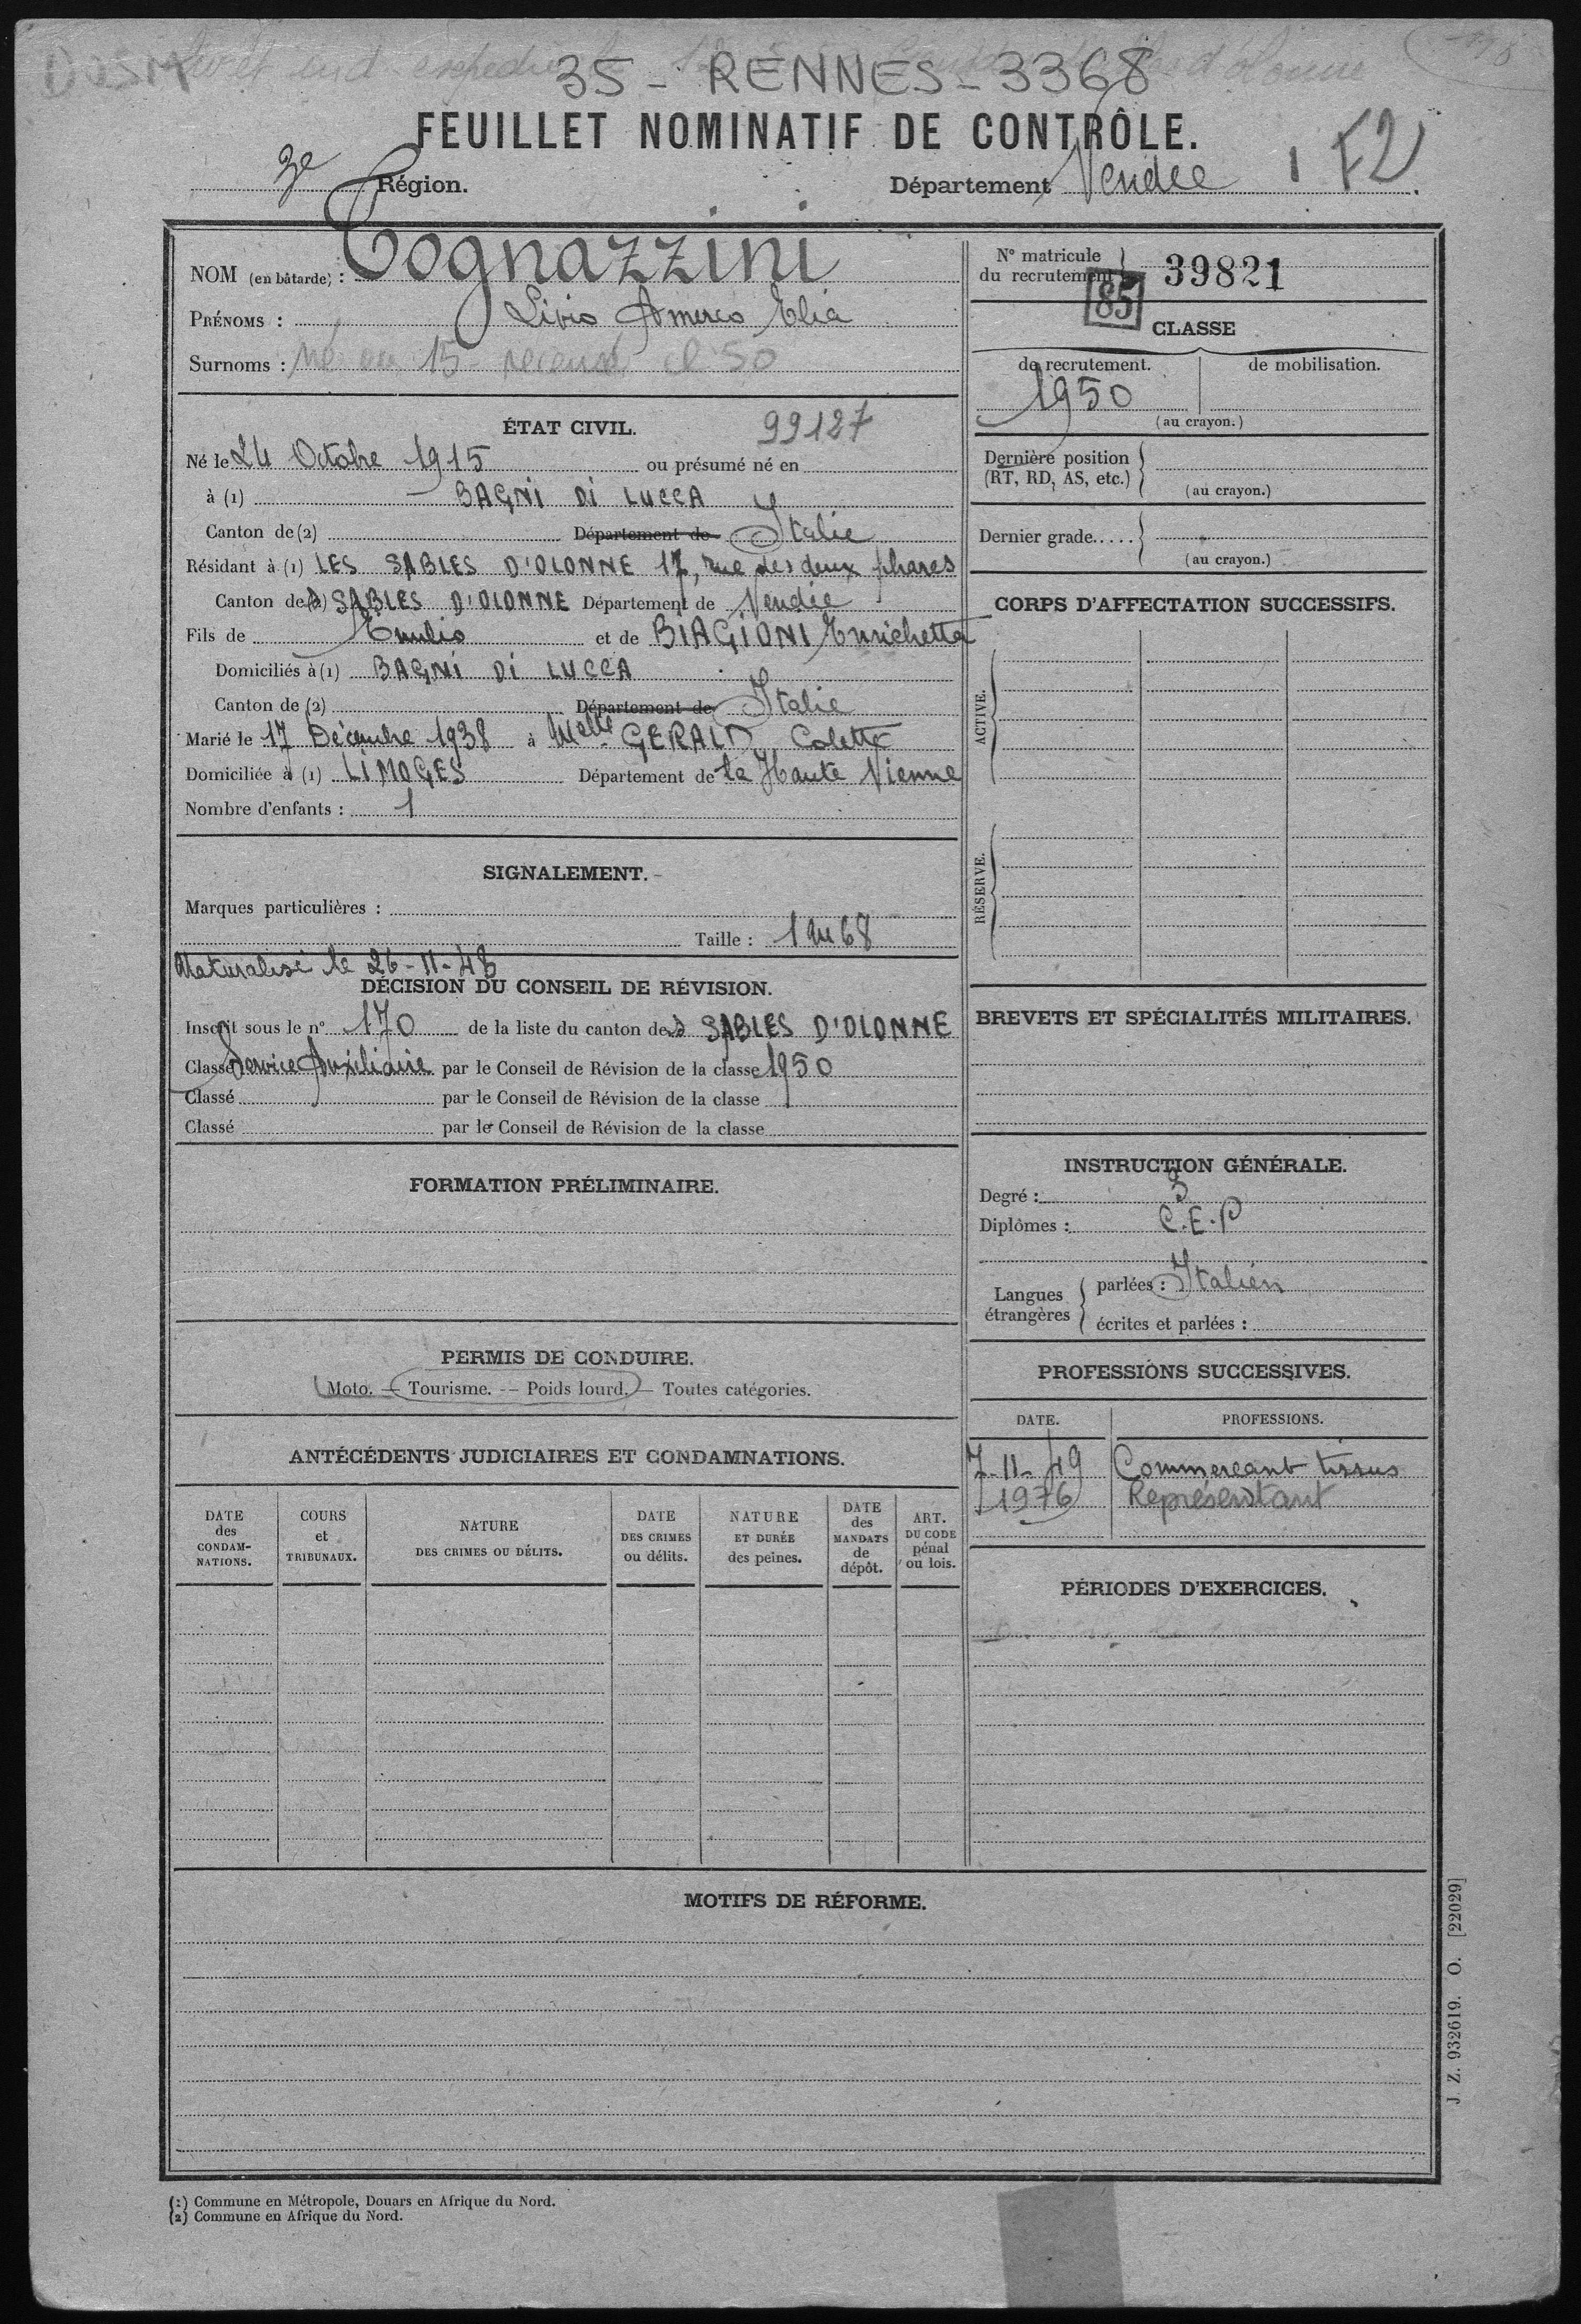 35 - RENNES - 3368
FEUILLET NOMINATIF DE CONTRÔLE.
3e Région.
Département Vendée 1 F2
NOM (en bâtarde) : Tognazzini
PRÉNOMS : Livio Amerco Elia
Surnoms : Né en 15 - recensé cl 50
ÉTAT CIVIL. 99127
Né le 24 Octobre 1915 ou présumé né en
à (1) BAGNI DI LUCCA
Canton de (2) Département de Italie
Résidant à (1) LES SABLES D'OLONNE 17, rue des deux phares
Canton des (2) SABLES D'OLONNE Département de Vendée
Fils de Emilio et de BIAGIONI Enrichetta
Domiciliés à (1) BAGNI DI LUCCA
Canton de (2) Département de Italie
Marié le 17 Décembre 1938 à Melle GERALD Colette
Domiciliée à (1) LIMOGES Département de la Haute Vienne
Nombre d'enfants : 1
SIGNALEMENT.
Marques particulières :
Taille : 1m68
Naturalisé le 26-11-48
DÉCISION DU CONSEIL DE RÉVISION.
Inscrit sous le n° 170 de la liste du canton des SABLES D'OLONNE
Classé Service Auxiliaire par le Conseil de Révision de la classe 1950
Classé par le Conseil de Révision de la classe
Classé par le Conseil de Révision de la classe
FORMATION PRÉLIMINAIRE.
PERMIS DE CONDUIRE.
Moto. — Tourisme. — Poids lourd. — Toutes catégories.
ANTÉCÉDENTS JUDICIAIRES ET CONDAMNATIONS.
DATE des CONDAM-NATIONS.
COURS et TRIBUNAUX.
NATURE DES CRIMES OU DÉLITS.
DATE DES CRIMES ou délits.
NATURE ET DURÉE des peines.
DATE des MANDATS de dépôt.
ART. DU CODE pénal ou lois.
N° matricule du recrutement 39821
85
CLASSE
de recrutement. de mobilisation.
1950
(au crayon.)
Dernière position
(RT, RD, AS, etc.)
(au crayon.)
Dernier grade.....
(au crayon.)
CORPS D'AFFECTATION SUCCESSIFS.
ACTIVE.
RÉSERVE.
BREVETS ET SPÉCIALITÉS MILITAIRES.
INSTRUCTION GÉNÉRALE.
Degré : 3
Diplômes : C.E.P
Langues étrangères
parlées : Italien
écrites et parlées :
PROFESSIONS SUCCESSIVES.
DATE. PROFESSIONS.
7-11-49 Commerçant tissus
1976 Représentant
PÉRIODES D'EXERCICES.
MOTIFS DE RÉFORME.
J. Z. 932619. O. [22029]
(1) Commune en Métropole, Douars en Afrique du Nord.
(2) Commune en Afrique du Nord.